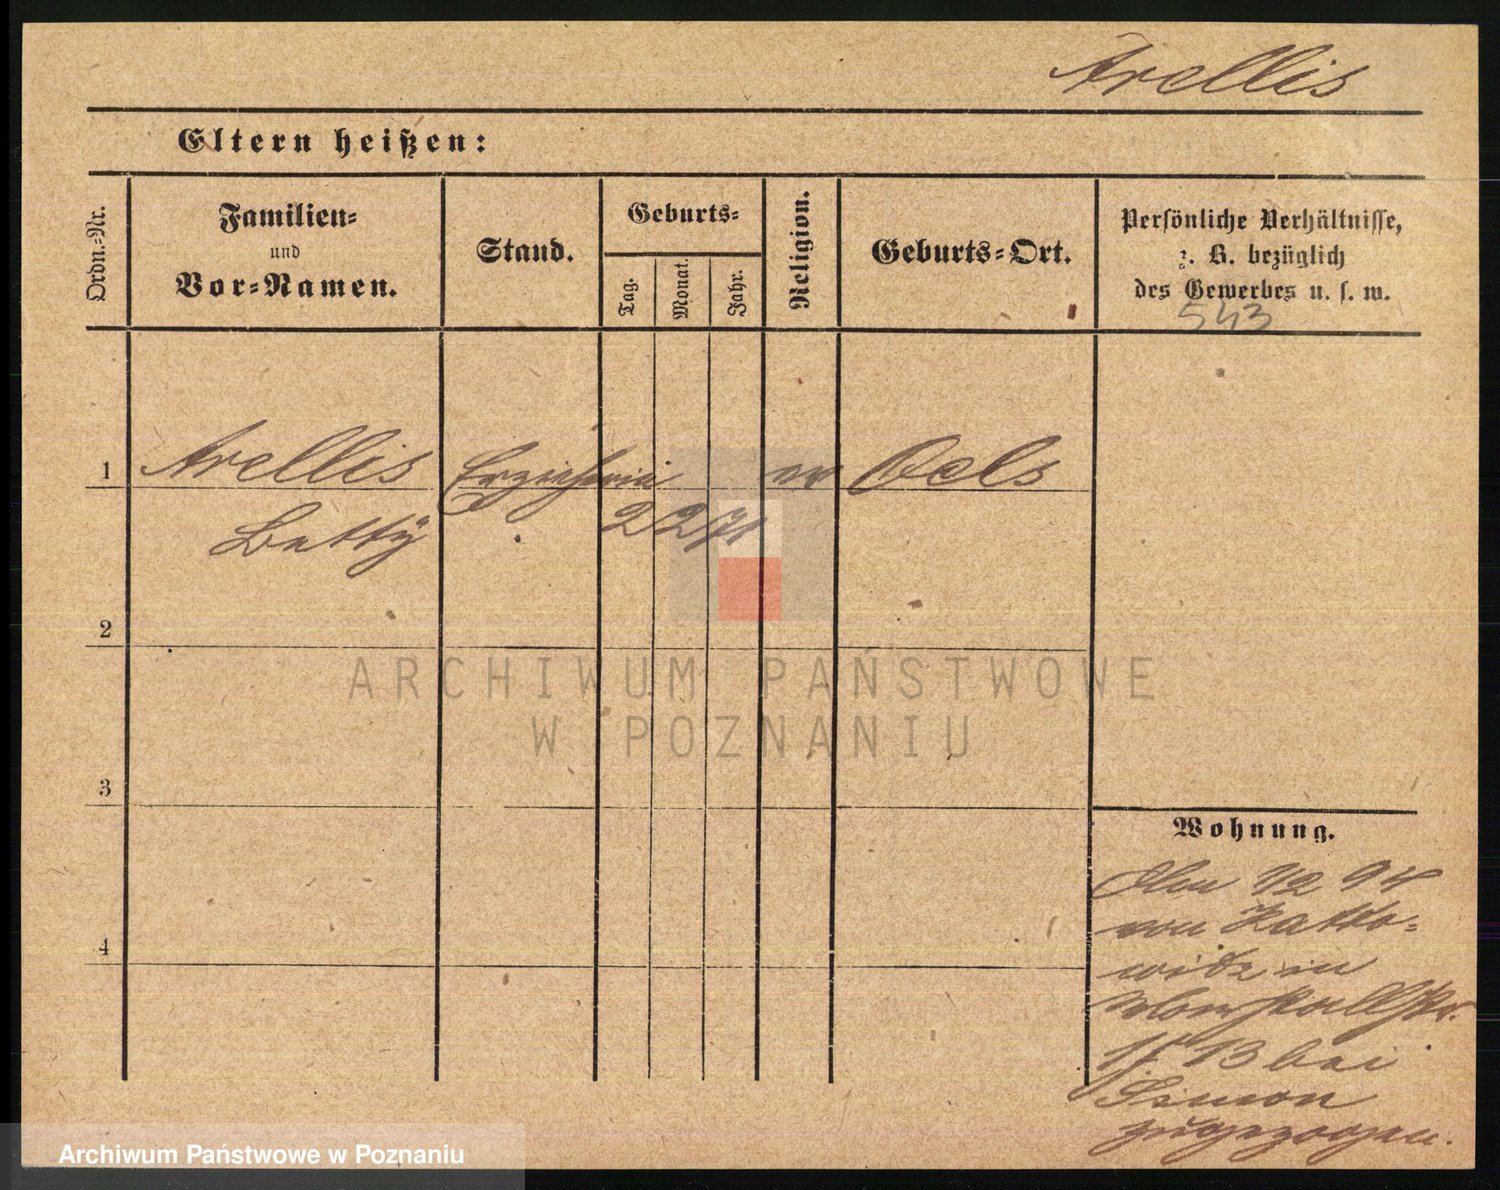 Arellis
Eltern heißen:
Ordn.-Nr.
Familien-
und
Vor-Namen.
Stand.
Geburts-
Tag.
Monat.
Jahr.
Religion.
Geburts-Ort.
Persönliche Verhältnisse,
z. B. bezüglich
des Gewerbes u. s. w.
543
1
Arellis
Erzieherin
ev
Oels
Betty
2 2 71
2
3
4
Wohnung.
Den 1/2 94
von Katto-
witz in
13 bei
Simon
zugezogen.
ARCHIWUM PAŃSTWOWE
W POZNANIU
Archiwum Państwowe w Poznaniu